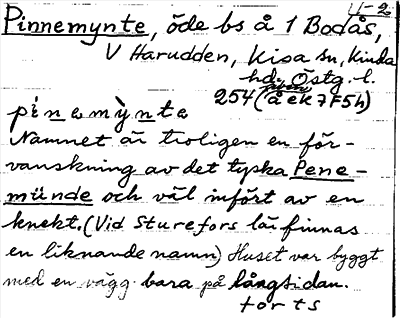 U-2
Pinnemynte, öde bs å 1 Bodås,
V Harudden, Kisa sn, Kinda
hd, Östg. l.
254 (å ek 7F5h)
pinemỳnte
Namnet är troligen en för-
vanskning av det tyska Pene-
münde och väl infört av en
knekt. (Vid Sturefors lär finnas
en liknande namn) Huset var byggt
med en vägg bara på långsidan.
forts